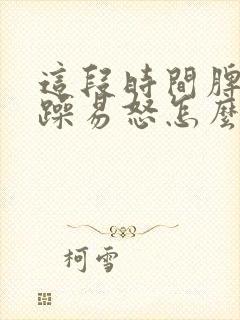 這段時間脾
躁易怒怎麼
柯雪